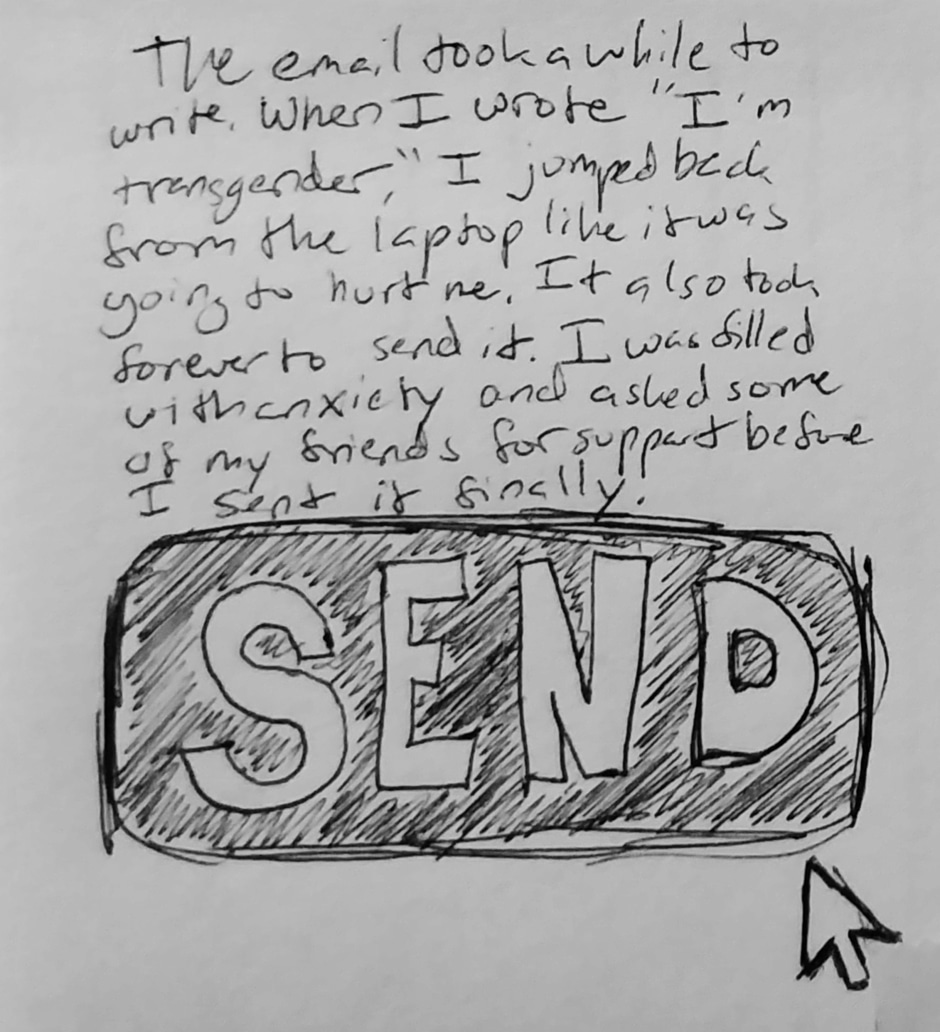 The email took a while to
write. When I wrote "I'm
transgender," I jumped back
from the laptop like it was
going to hurt me. It also took
forever to send it. I was filled
with anxiety and asked some
of my friends for support before
I sent it finally!
SEND